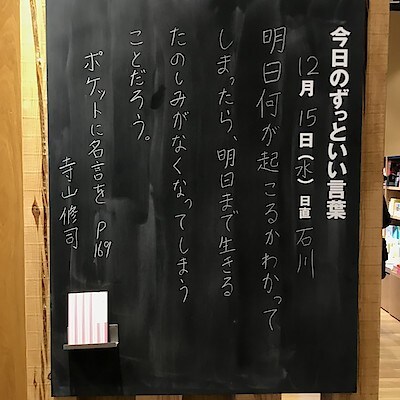 今日のずっといい言葉
12月15日(水)日直 石川
明日何が起こるかわかって
しまったら、明日まで生きる
たのしみがなくなってしまう
ことだろう。
ポケットに名言を P169
寺山修司